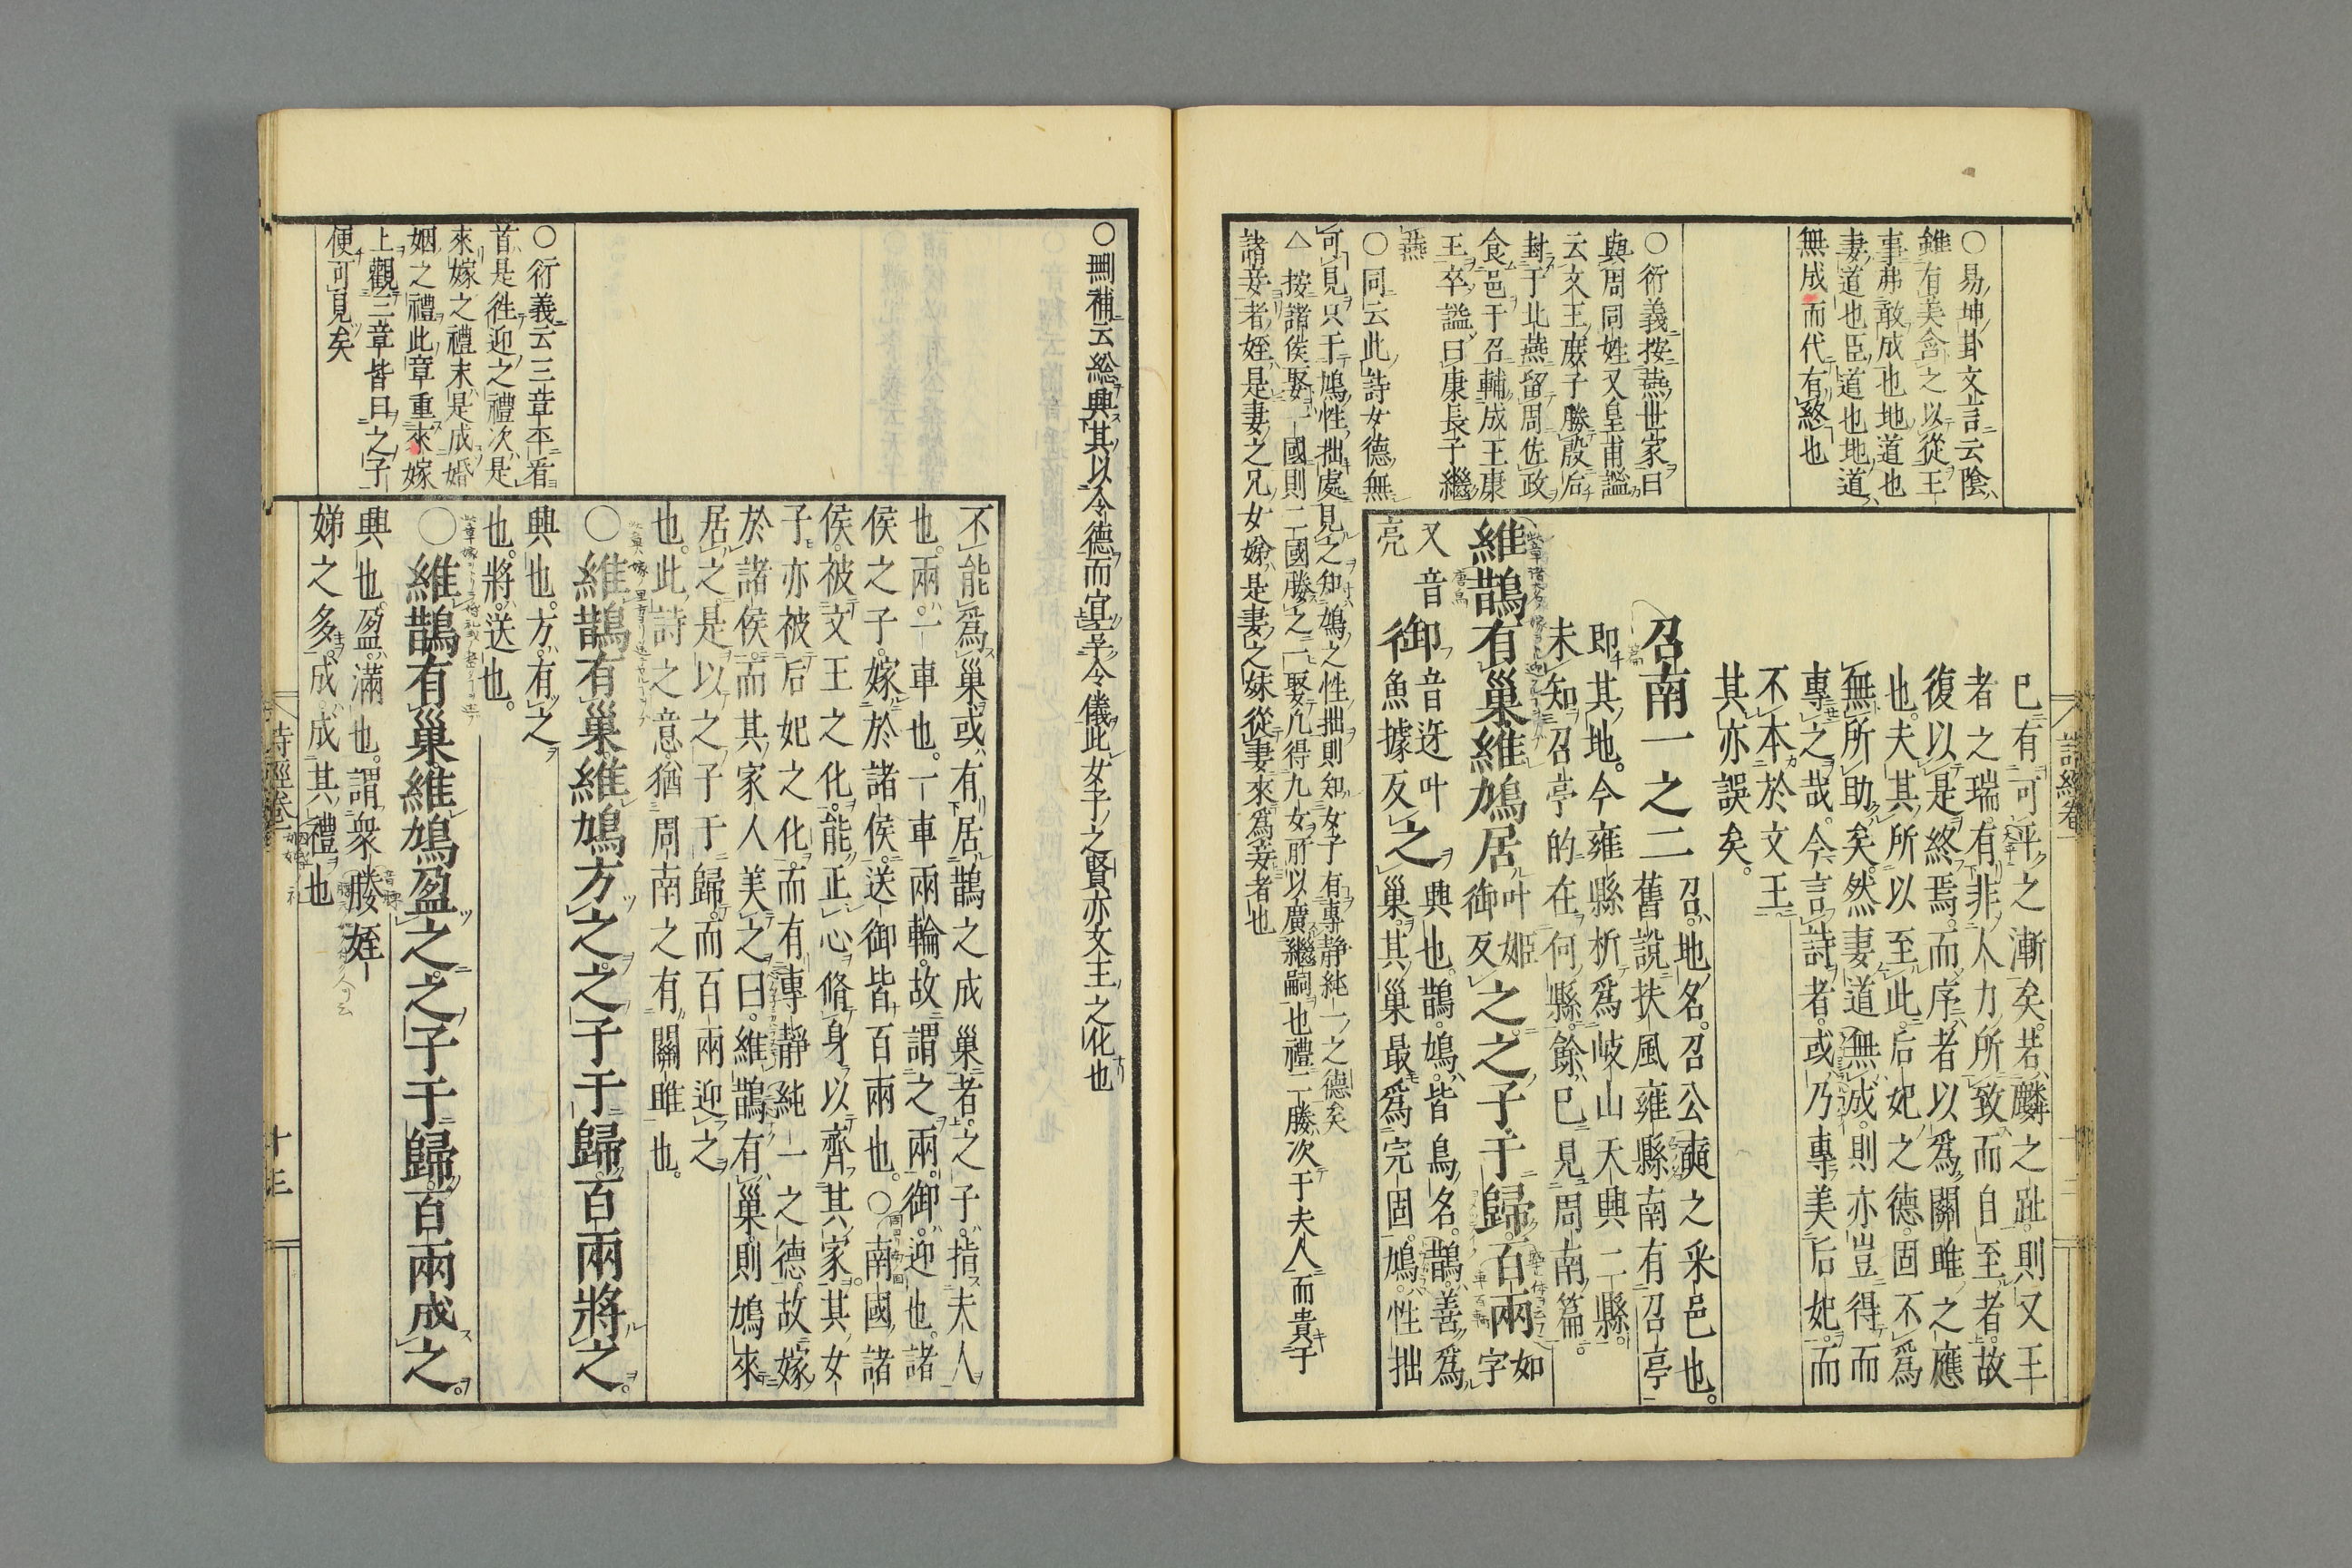 詩經卷一
已有可平之漸矣。若麟之趾。則又王
者之瑞。有非人力所致而自至者。故
復以是終焉。而序者以爲關雎之應
也。夫其所以至此。后妃之德。固不爲
無所助矣。然妻道無成。則亦豈得而
專之哉。今言詩者。或乃專美后妃。而
不本於文王。
其亦誤矣。
召南一之二
召。地名。召公奭之采邑也。
舊說扶風雍縣南有召亭
即其地。今雍縣析爲岐山天興二縣。
未知召亭的在何縣。餘已見周南篇。
維鵲有巢維鳩居
叶姬
御反
之。之子于歸。百兩
如字
又音亮
御
音迓叶
魚據反
之
興也。鵲。鳩。皆鳥名。鵲。善爲
巢。其巢最爲完固。鳩。性拙
○易坤卦文言云陰
雖有美含之以從王
事弗敢成也地道也
妻道也臣道也地道
無成而代有終也
○衍義按燕世家曰
與周同姓又皇甫謐
云文王庶子勝殷后
封于北燕留周佐政
食邑于召輔成王康
王卒謚曰康長子繼
燕
○同云此詩女德無
可見只于鳩性拙處見之知鳩之性拙則知女子有專静純一之德矣
△按諸侯娶一國則二國媵之一娶九得九女所以廣繼嗣也禮二媵次于夫人而貴于
諸妾者姪是妻之兄女娣是妻之妹從妻來爲妾者也
○刪補云総興其以令德而宜享令儀此女子之賢亦文王之化也
不能爲巢。或有居鵲之成巢者。之子。指夫人
也。兩。一車也。一車兩輪。故謂之兩。御。迎也。諸
侯之子。嫁於諸侯。送御皆百兩也。○南國諸
侯。被文王之化。能正心脩身以齊其家。其女
子亦被后妃之化。而有專靜純一之德。故嫁
於諸侯。而其家人美之曰。維鵲有巢。則鳩來
居之。是以之子于歸。而百兩迎之
也。此詩之意。猶周南之有關雎也。
○維鵲有巢。維鳩方之。之子于歸。百兩將之。
興也。方。有之
也。將。送也。
○維鵲有巢。維鳩盈之。之子于歸。百兩成之。
興也。盈。滿也。謂衆媵姪
娣之多。成。成其禮也
○衍義云三章平看
首是往迎之禮次是
來嫁之禮末是成婚
姻之禮此章重來嫁
上觀三章皆曰之子
便可見矣
詩經卷一
十三